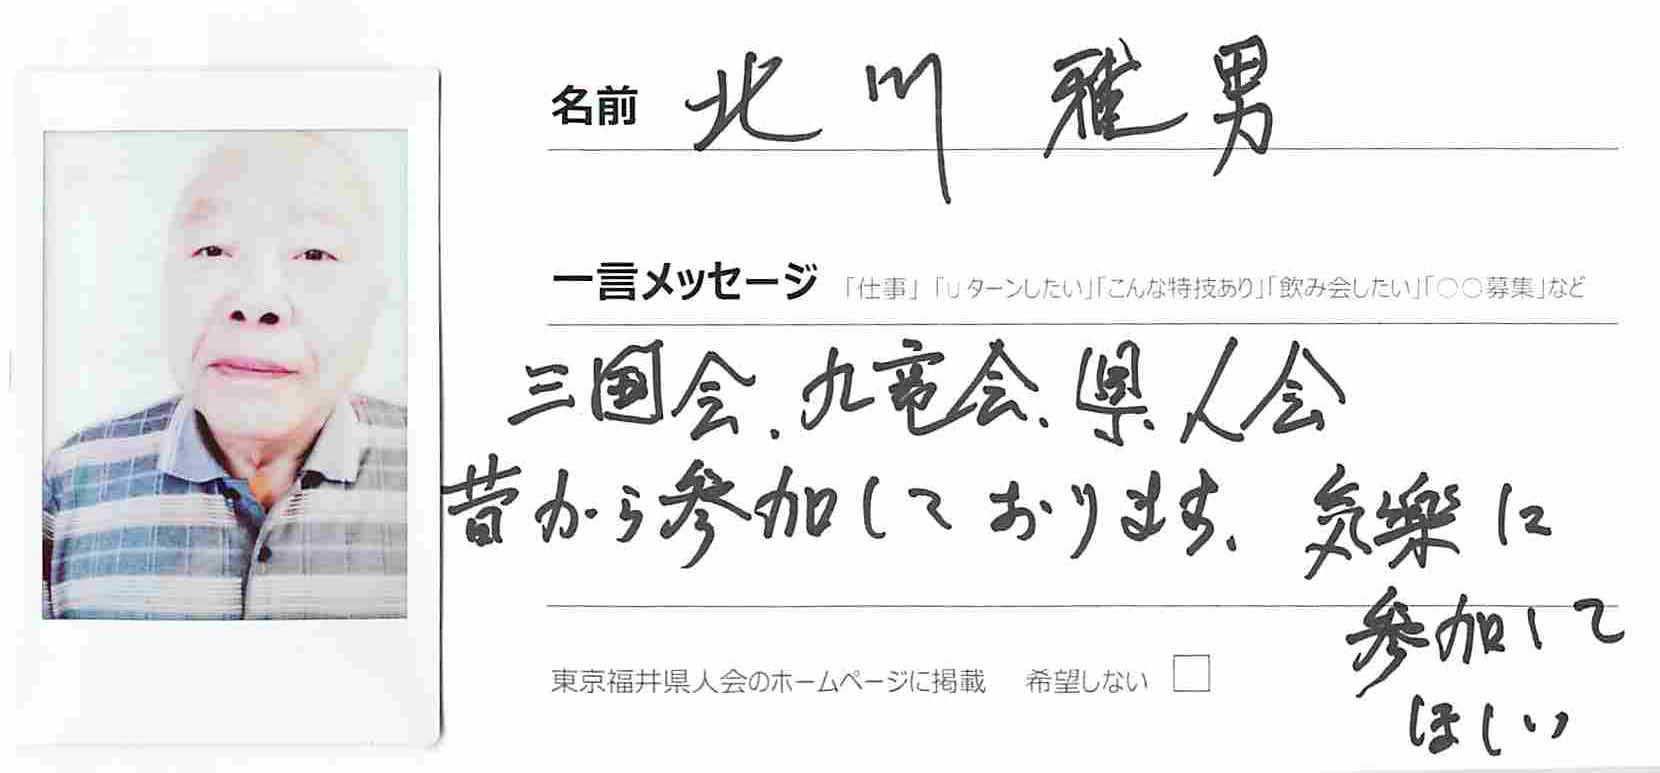 名前 北川 雅男
一言メッセージ 「仕事」「Uターンしたい」「こんな特技あり」「飲み会したい」「○○募集」など
三国会、九竜会、県人会
昔から参加しております、気楽に
参加して
ほしい
東京福井県人会のホームページに掲載 希望しない □